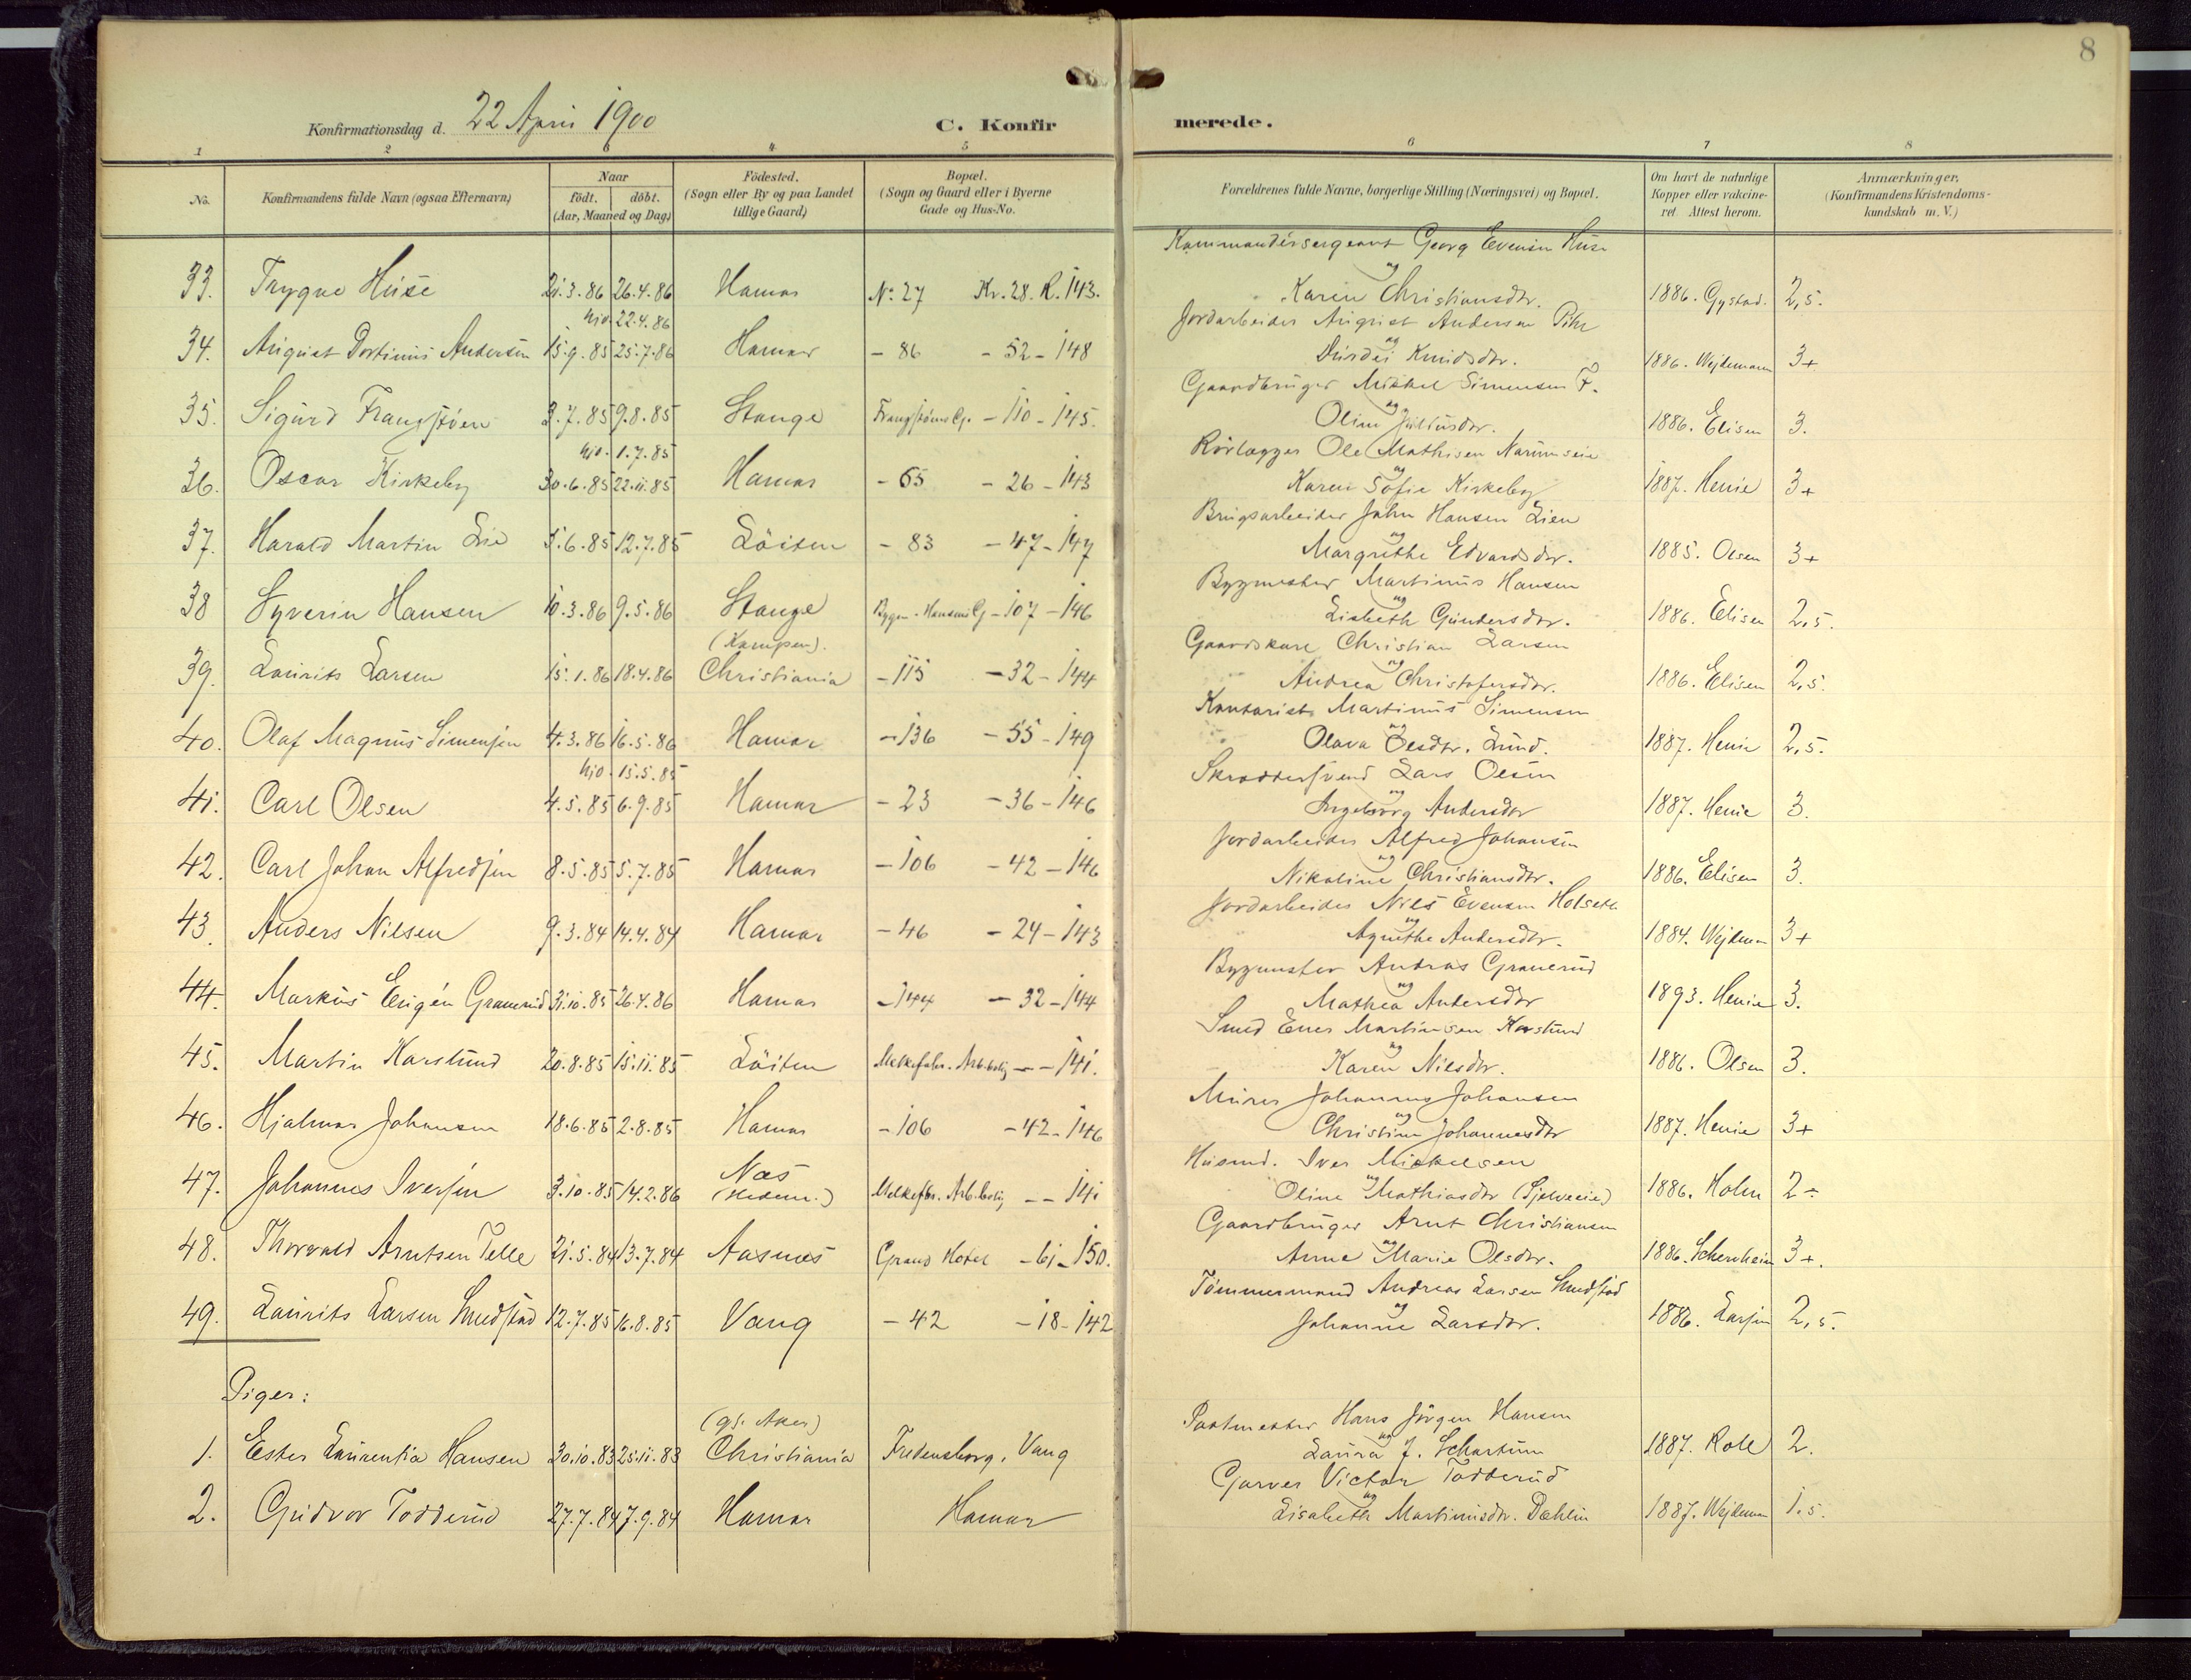 8
Konfirmationsdag d. 22 April 1900
C. Konfirmerede.
1 2 3 4 5 6 7 8
No. Konfirmandens fulde Navn (ogsaa Efternavn) Naar födt. döbt. (Aar, Maaned og Dag) Födested. (Sogn eller By og paa Landet tillige Gaard) Bopæl. (Sogn og Gaard eller i Byerne Gade og Hus-No. Forældrenes fulde Navne, borgerlige Stilling (Næringsvei) og Bopæl. Om havt de naturlige Kopper eller vakcineret. Attest herom. Anmærkninger. (Konfirmandens Kristendomskundskab m. V.)
Kommandérsergeant Georg Evensen Huse
33. Trygve Huse 21.3.86 26.4.86 Hamar No. 27 Kv. 28. R. 143. og Karen Christiansdtr. 1886. Gystad. 2,5.
hjd. 22.4.86 Jordarbeider August Andersen
34. August Dortinus Andersen 15.9.85 25.7.86 Hamar - 86 - 52 - 148 og Durdei Knudsdtr. 1886. Wejdemann 3+
Gaardbruger Mikkel Simensen F.
35. Sigurd Frangstöen 3.7.85 9.8.85 Stange - 110 - 145. og Oline Juliusdtr. 1886. Elisen 3.
hjd. 1.7.85 Rörlægger Ole Mathisen
36. Oscar Kirkeby 30.6.85 22.11.85 Hamar - 65 - 26 - 143 og Karen Sofie Kirkeby 1887. Henie 3+
Brugsarbeider John Hansen Lien
37. Harald Martin Lie 5.6.85 12.7.85 Löiten - 83 - 47 - 147 og Margrethe Edvardsdtr. 1885. Olsen 3+
Bygmester Martinus Hansen
38 Syverin Hansen 10.3.86 9.5.86 Stange Bygm. Hansens G. - 107 - 146 og Lisbeth Gundersdtr. 1886. Elisen 2,5.
(Kampen). Gaardskarl Christian Larsen
39. Laurits Larsen 15.1.86 18.4.86 Christiania - 115 - 32 - 144 og Andrea Christofersdtr. 1886. Elisen 2,5.
Kontorist Martinus Simensen
40. Olaf Magnus Simensen 4.3.86 16.5.86 Hamar - 136 - 55 - 149 og Olava Olsdtr. Lund. 1887. Henie 2,5.
hjd. 15.5.85 Skræddersvend Lars Olsen
41. Carl Olsen 4.5.85 6.9.85 Hamar - 23 - 36 - 146 og Ingeborg Andersdtr 1887. Henie 3.
Jordarbeider Alfred Johansen
42. Carl Johan Alfredsen 8.5.85 5.7.85 Hamar - 106 - 42 - 146 og Nikoline Christiansdtr. 1886. Elisen 3.
Jordarbeider Nils Evensen Holseth
43. Anders Nilsen 9.3.84 14.4.84 Hamar - 46 - 24 - 143 og Agnethe Andersdtr. 1884. Wejdemann 3+
Bygmester Andreas Granerud
44. Markus Eugén Granerud 31.10.85 26.4.86 Hamar - 144 - 32 - 144 og Mathea Andersdtr 1893. Henie 3.
Smed Ener Martinsen Korslund
45. Martin Karslund 20.8.85 15.11.85 Löiten Melkefabr. Arb.bolig - - 141. og Karen Nilsdtr. 1886. Olsen 3.
Murer Johannes Johansen
46. Hjalmar Johansen 18.6.85 2.8.85 Hamar - 106 - 42 - 146 og Christine Johannesdtr 1887. Henie 3+
Næs Husmd. Iver Mikkelsen
47. Johannes Iversen 3.10.85 14.2.86 (Hedem.) Melkefbr. Arb.bolig - - 141 og Oline Mathiasdtr (Sjelveeie) 1886. Holm 2÷
Gaardbruger Arnt Christiansen
48. Thorvald Arntsen Telle 21.5.84 13.7.84 Aasnæs Grand Hotel - 61 - 150. og Anne Marie Olsdtr. 1886. Schernhein 3+.
Tömmermand Andreas Larsen Smedstad
49. Laurits Larsen Smedstad 12.7.85 16.8.85 Vang - 42 - 18 - 142 og Johanne Larsdtr. 1886. Larsen 2,5.
Piger:
(gl. Aker) Postmester Hans Jörgen Hansen
1. Ester Laurentia Hansen 30.10.83 25.11.83 Christiania Fredensborg, Vang og Laura J. Schartum 1887. Roll 2.
Garver Victor Todderud
2. Gudvor Todderud 27.7.84 7.9.84 Hamar Hamar og Lisabeth Martinusdtr. Dæhlin 1887. Wejdemann 1.5.